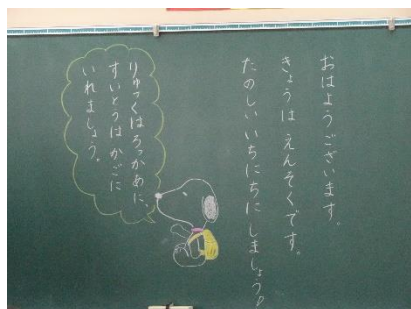 おはようございます。
きょうは えんそくです。
たのしいいちにちにしましょう♪
りゅっくはろっかあに、
すいとうはかごに
いれましょう。